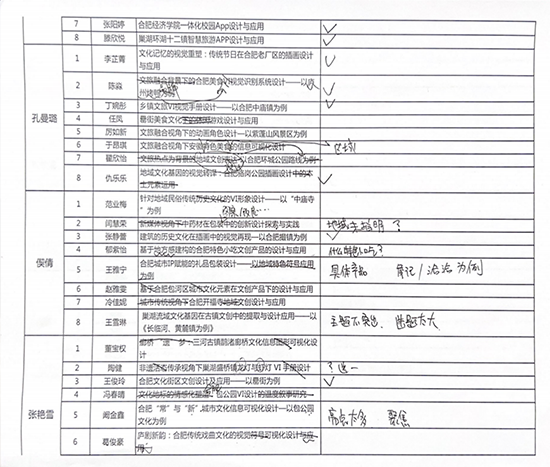 7 张阳婷 合肥经济学院一体化校园App设计与应用
8 滕欣悦 巢湖环湖十二镇智慧旅游APP设计与应用
孔曼璐
1 李芷菁 文化记忆的视觉重塑：传统节日在合肥老厂区的插画设计
与应用
2 陈淼 文旅融合背景下的合肥美食VI视觉识别系统设计——以
为例
3 丁婉彤 乡镇文旅VI视觉手册设计——以合肥中庙镇为例
4 任凤 罍街美食文化 游戏设计与应用
5 厉如新 文旅融合视角下的动画角色设计—以紫蓬山风景区为例
6 于昂琪 文旅融合视角下安徽 美食的信息可视化设计
7 翟欣怡 文旅热点为背景的地域文创 以合肥环城公园路线为例
8 仇乐乐 地域文化基因的视觉转译：合肥骆岗公园插画设计中的本
土元素运用
俣倩
1 范业梅 针对地域民俗传统历史文化的VI形象设计——以“中庙寺
”为例
2 闫慧荣 新媒体视角下中药材在包装中的创新设计探索与实践 地域未指明？
3 张静蕾 建筑的历史文化在插画中的视觉再现—以合肥撮镇为例
4 郁紫怡 基于地方感建构的合肥特色小吃文创产品的设计与应用
5 王雅宁 合肥城市IP赋能的礼品包装设计——以地域特色符号应用
为例 具体产品
6 赵雅雯 基于合肥包河区城市文化元素在文创产品下的设计与应用
7 冷佳妮 城市传统视角下合肥开福寺地域文创设计与应用
8 王雪琳 巢湖流域文化基因在古镇文创中的提取与设计应用——以
《长临河、黄麓镇为例》 主题不突出，
张艳雪
1 董宝权 廊桥“遗”梦、三河古镇鹊渚廊桥文化信息 可视化设
计
2 陶健 非遗活态传承视角下巢湖盛桥镇龙灯与 灯 VI 手册设计
3 王俊玲 合肥文化街区文创设计及应用——以罍街为例
4 冯春晴 文化地标的情感化 包公园VI设计的温度叙事研究
5 阚金鑫 合肥“常”与“新”，城市文化信息可视化设计—以包公园
文化为例 亮点太多 聚焦
6 葛俊豪 庐剧新韵：合肥传统戏曲文化的视觉符号可视化设计与应
用